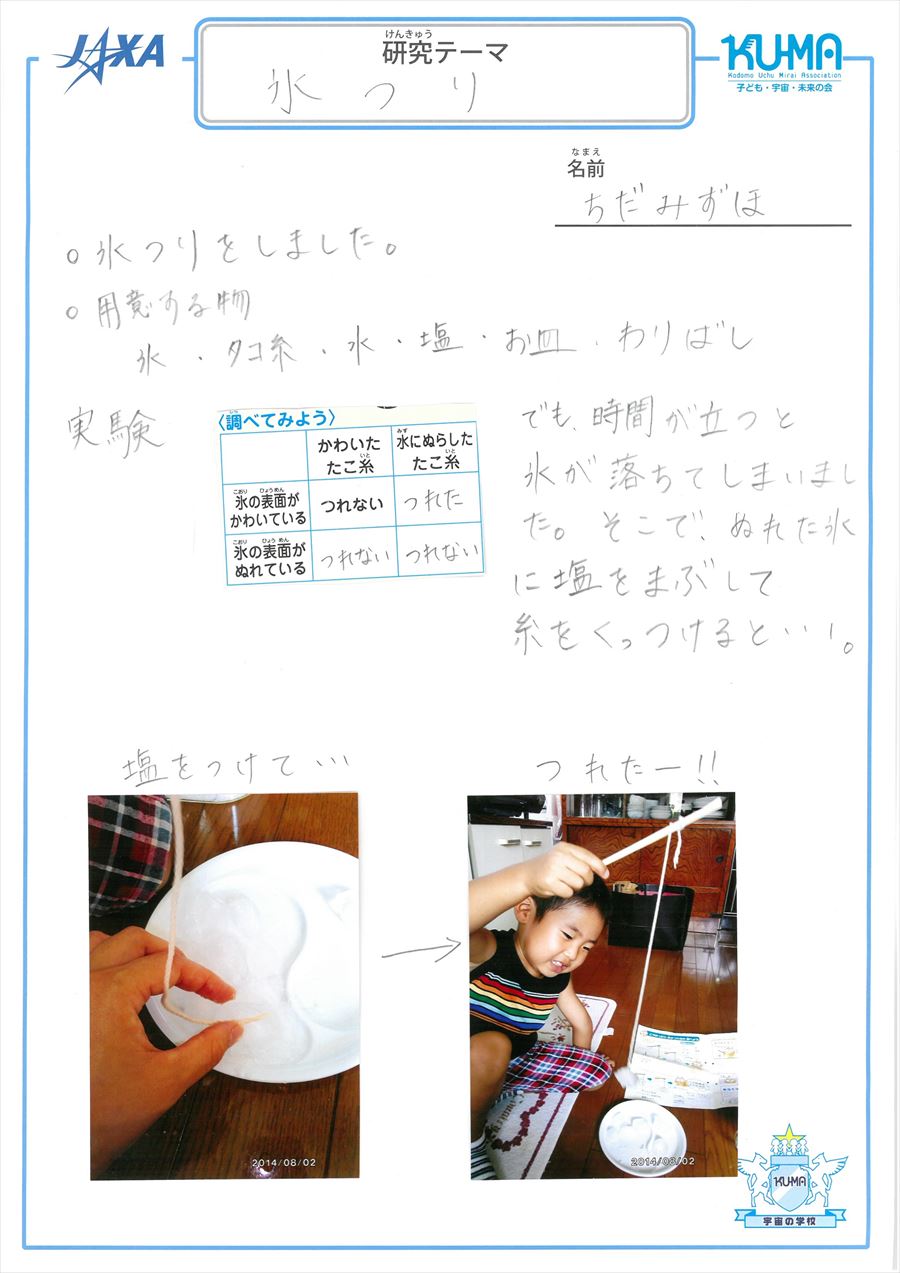 JAXA
けんきゅう
研究テーマ
氷つり
KU-MA
Kodomo Uchu Mirai Association
子ども・宇宙・未来の会
なまえ
名前
ちだみずほ
○ 氷つりをしました。
○ 用意する物
氷・タコ糸・水・塩・お皿・わりばし
実験
〈調べてみよう〉
かわいた
たこ糸
水にぬらした
たこ糸
氷の表面が
かわいている
つれない
つれた
氷の表面が
ぬれている
つれない
つれない
でも、時間が立つと
氷が落ちてしまいまし
た。そこで、ぬれた氷
に塩をまぶして
糸をくっつけると…。
塩をつけて…
つれたー!!
2014/08/02
2014/08/02
KU-MA
宇宙の学校